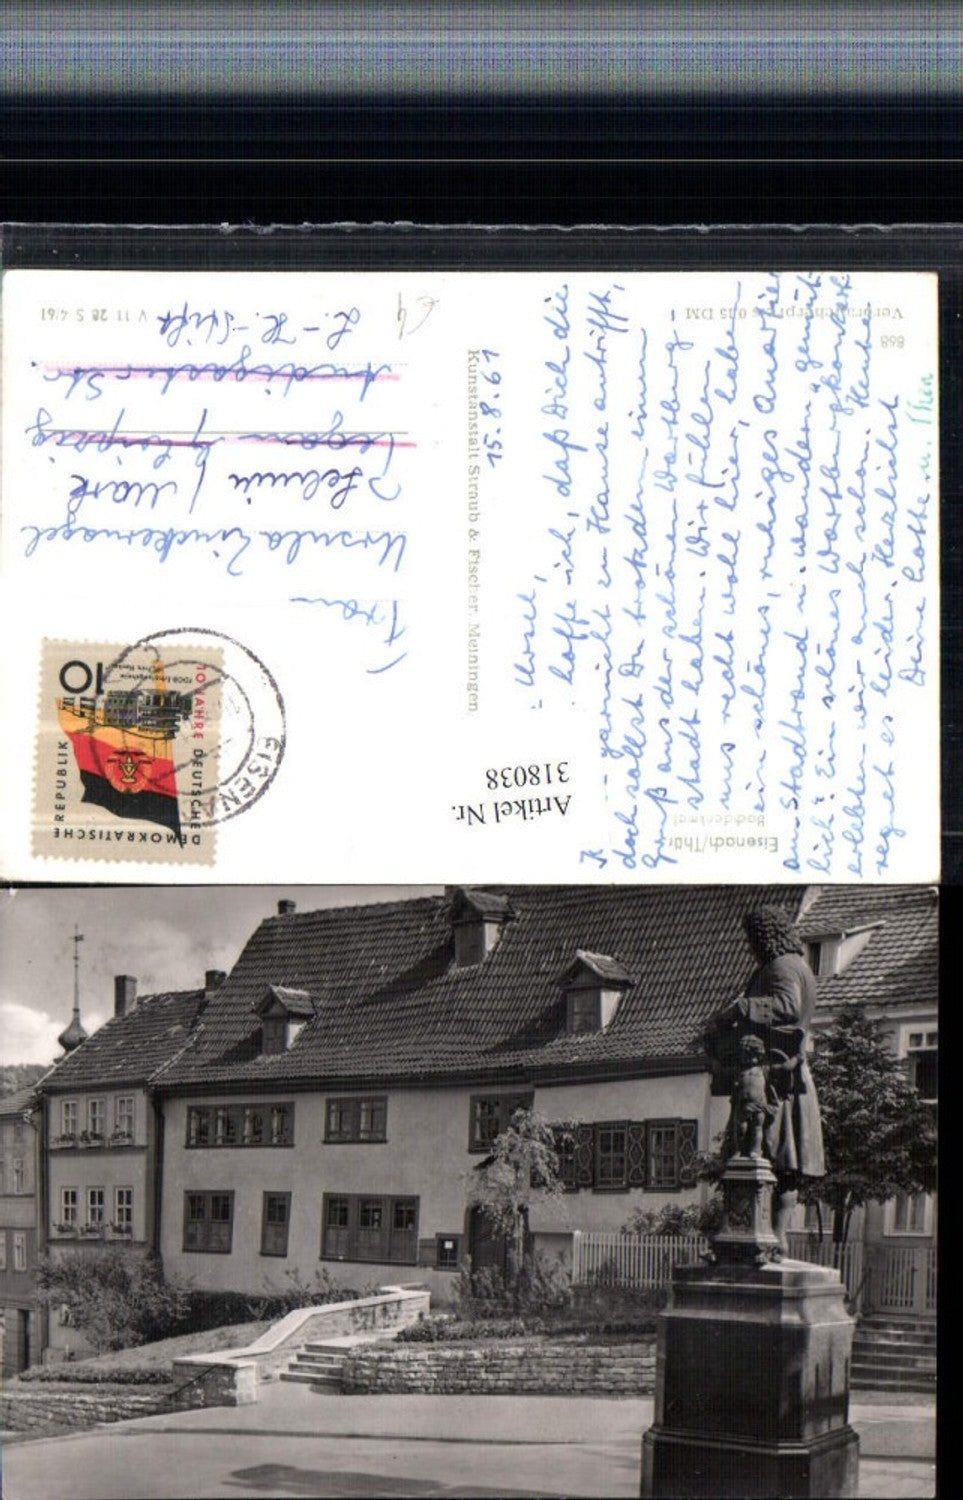 868
Eisenach/Thür
Bachdenkmal
Verbraucherpreis 0,15 DM
15. 8. 61
Ursel,
hoffe ich, daß Dich die
K garnicht zu Hause antrifft,
doch sollst Du trotzdem einen
Gruß aus der schönen Wartburg
stadt haben. Wir fühlen
uns recht wohl hier, haben
ein schönes, ruhiges Quartier
am Stadtrand u. wandern gemüt
lich. Ein schönes Wartburgkonzert
erlebten wir auch schon. Heute
regnet es leider. Herzlichst
Deine Lotte u. Thea
Kunstanstalt Straub & Fischer, Meiningen
Artikel Nr.
318038
10 JAHRE DEUTSCHE
DEMOKRATISCHE
REPUBLIK
10
EISENA
Frau
Ursula Zinckernagel
Fehmin / Mark
Leipzig
Str.
L.-H.-Stift
V 11 28 S 4/61